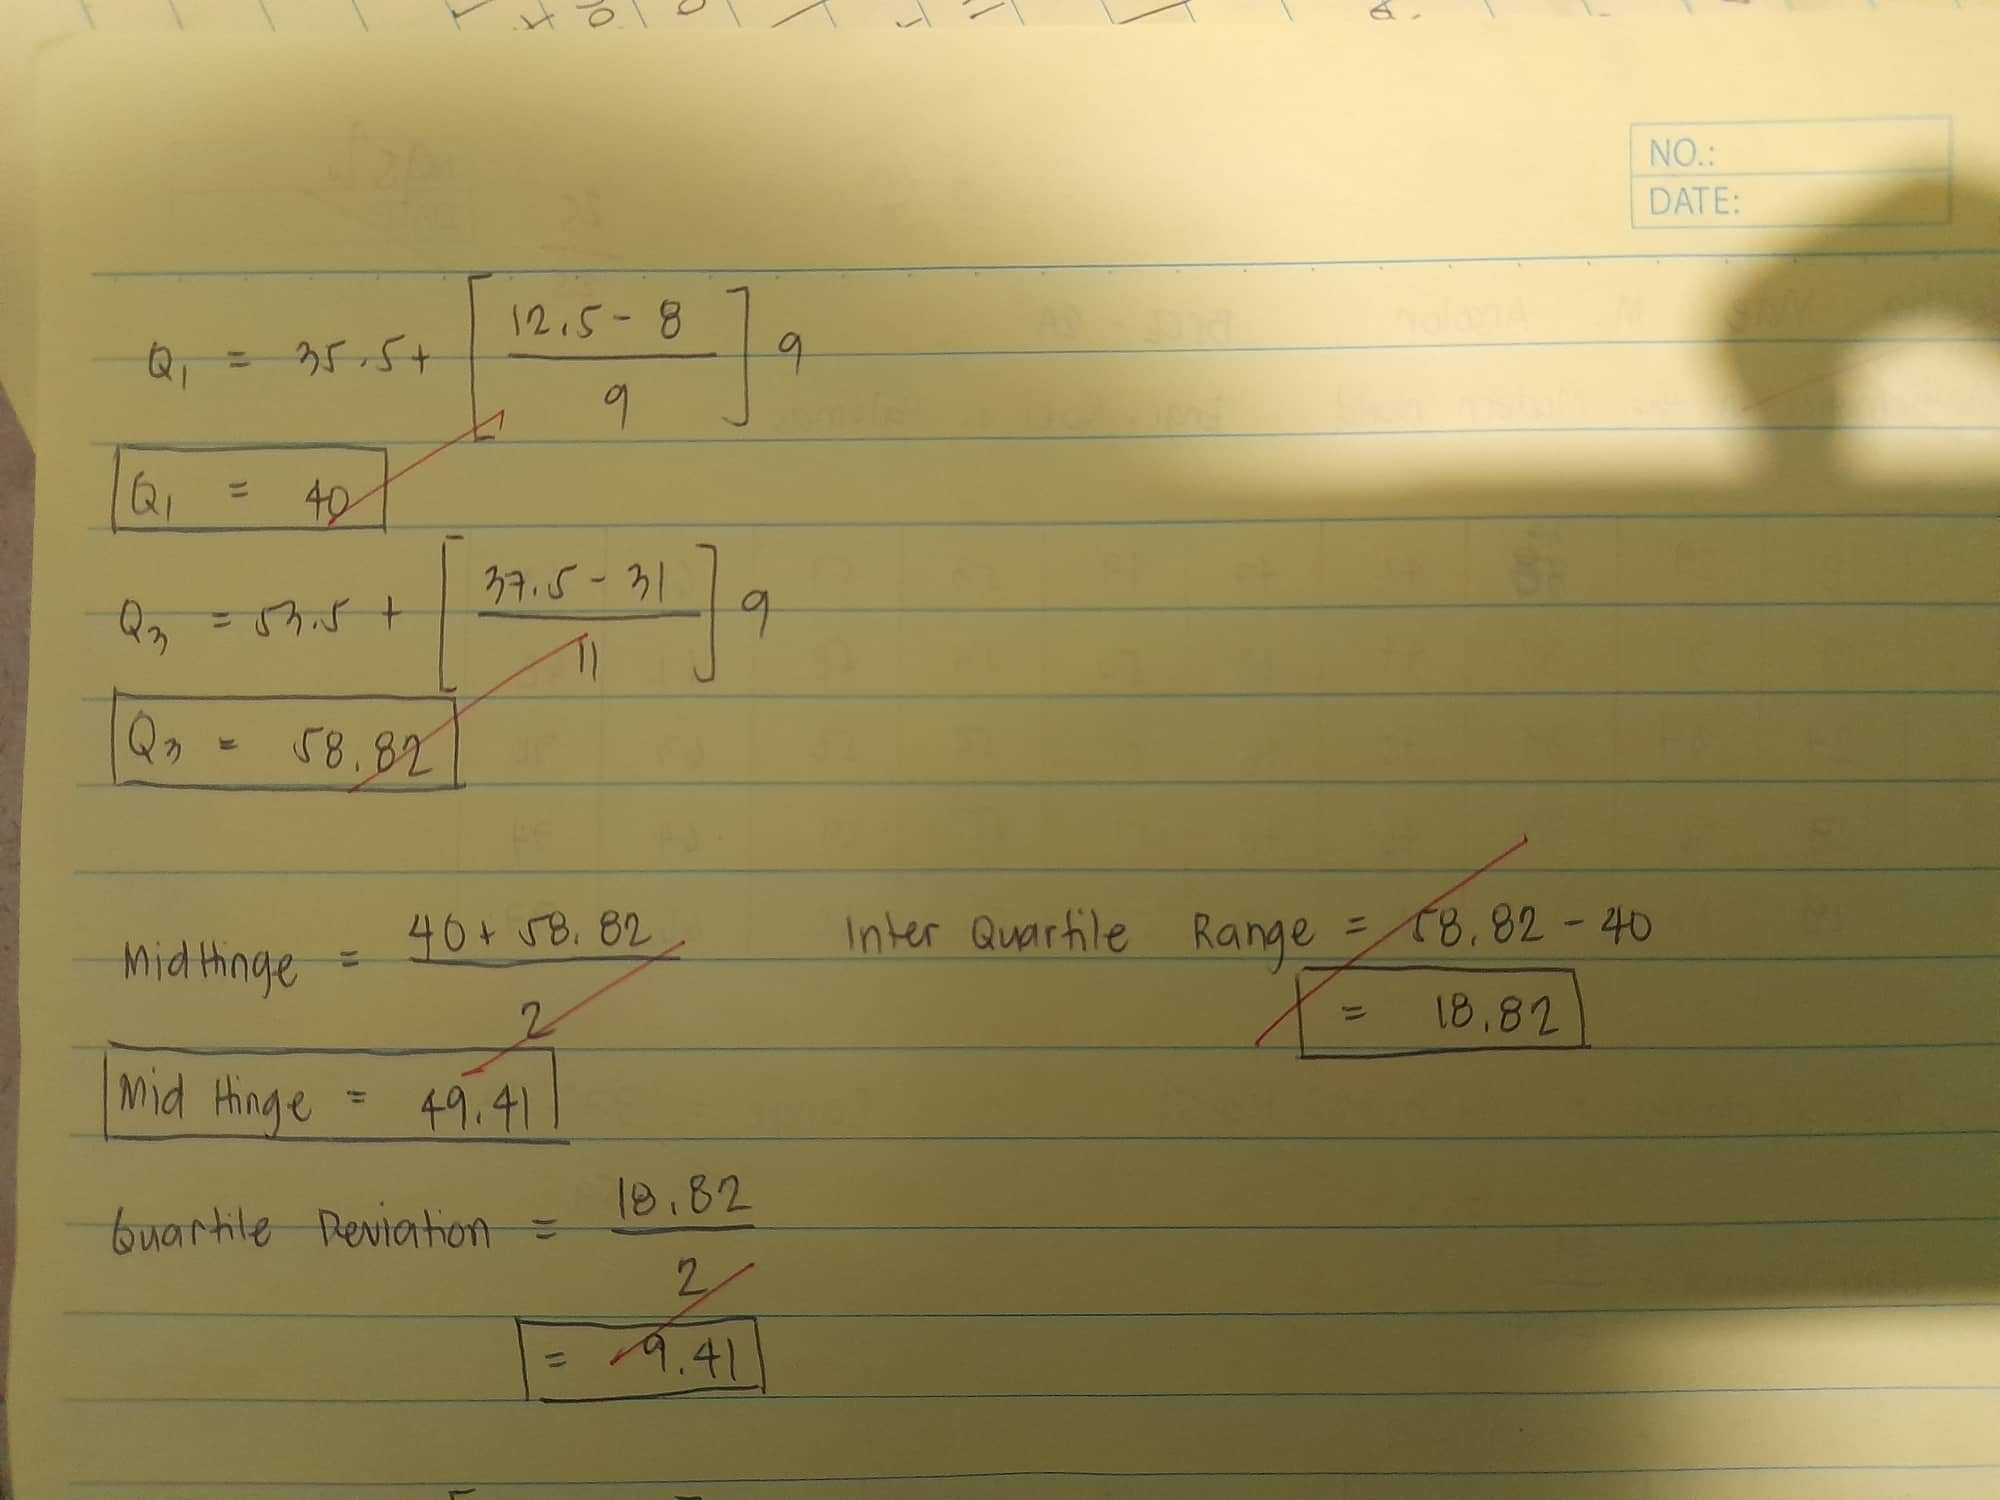 NO.:
DATE:
Q1 = 35.5 + [ 12.5 - 8 / 9 ] 9
Q1 = 40
Q3 = 53.5 + [ 37.5 - 31 / 11 ] 9
Q3 = 58.82
MidHinge = 40 + 58.82 / 2
Inter Quartile Range = 58.82 - 40
= 18.82
Mid Hinge = 49.41
Quartile Deviation = 18.82 / 2
= 9.41